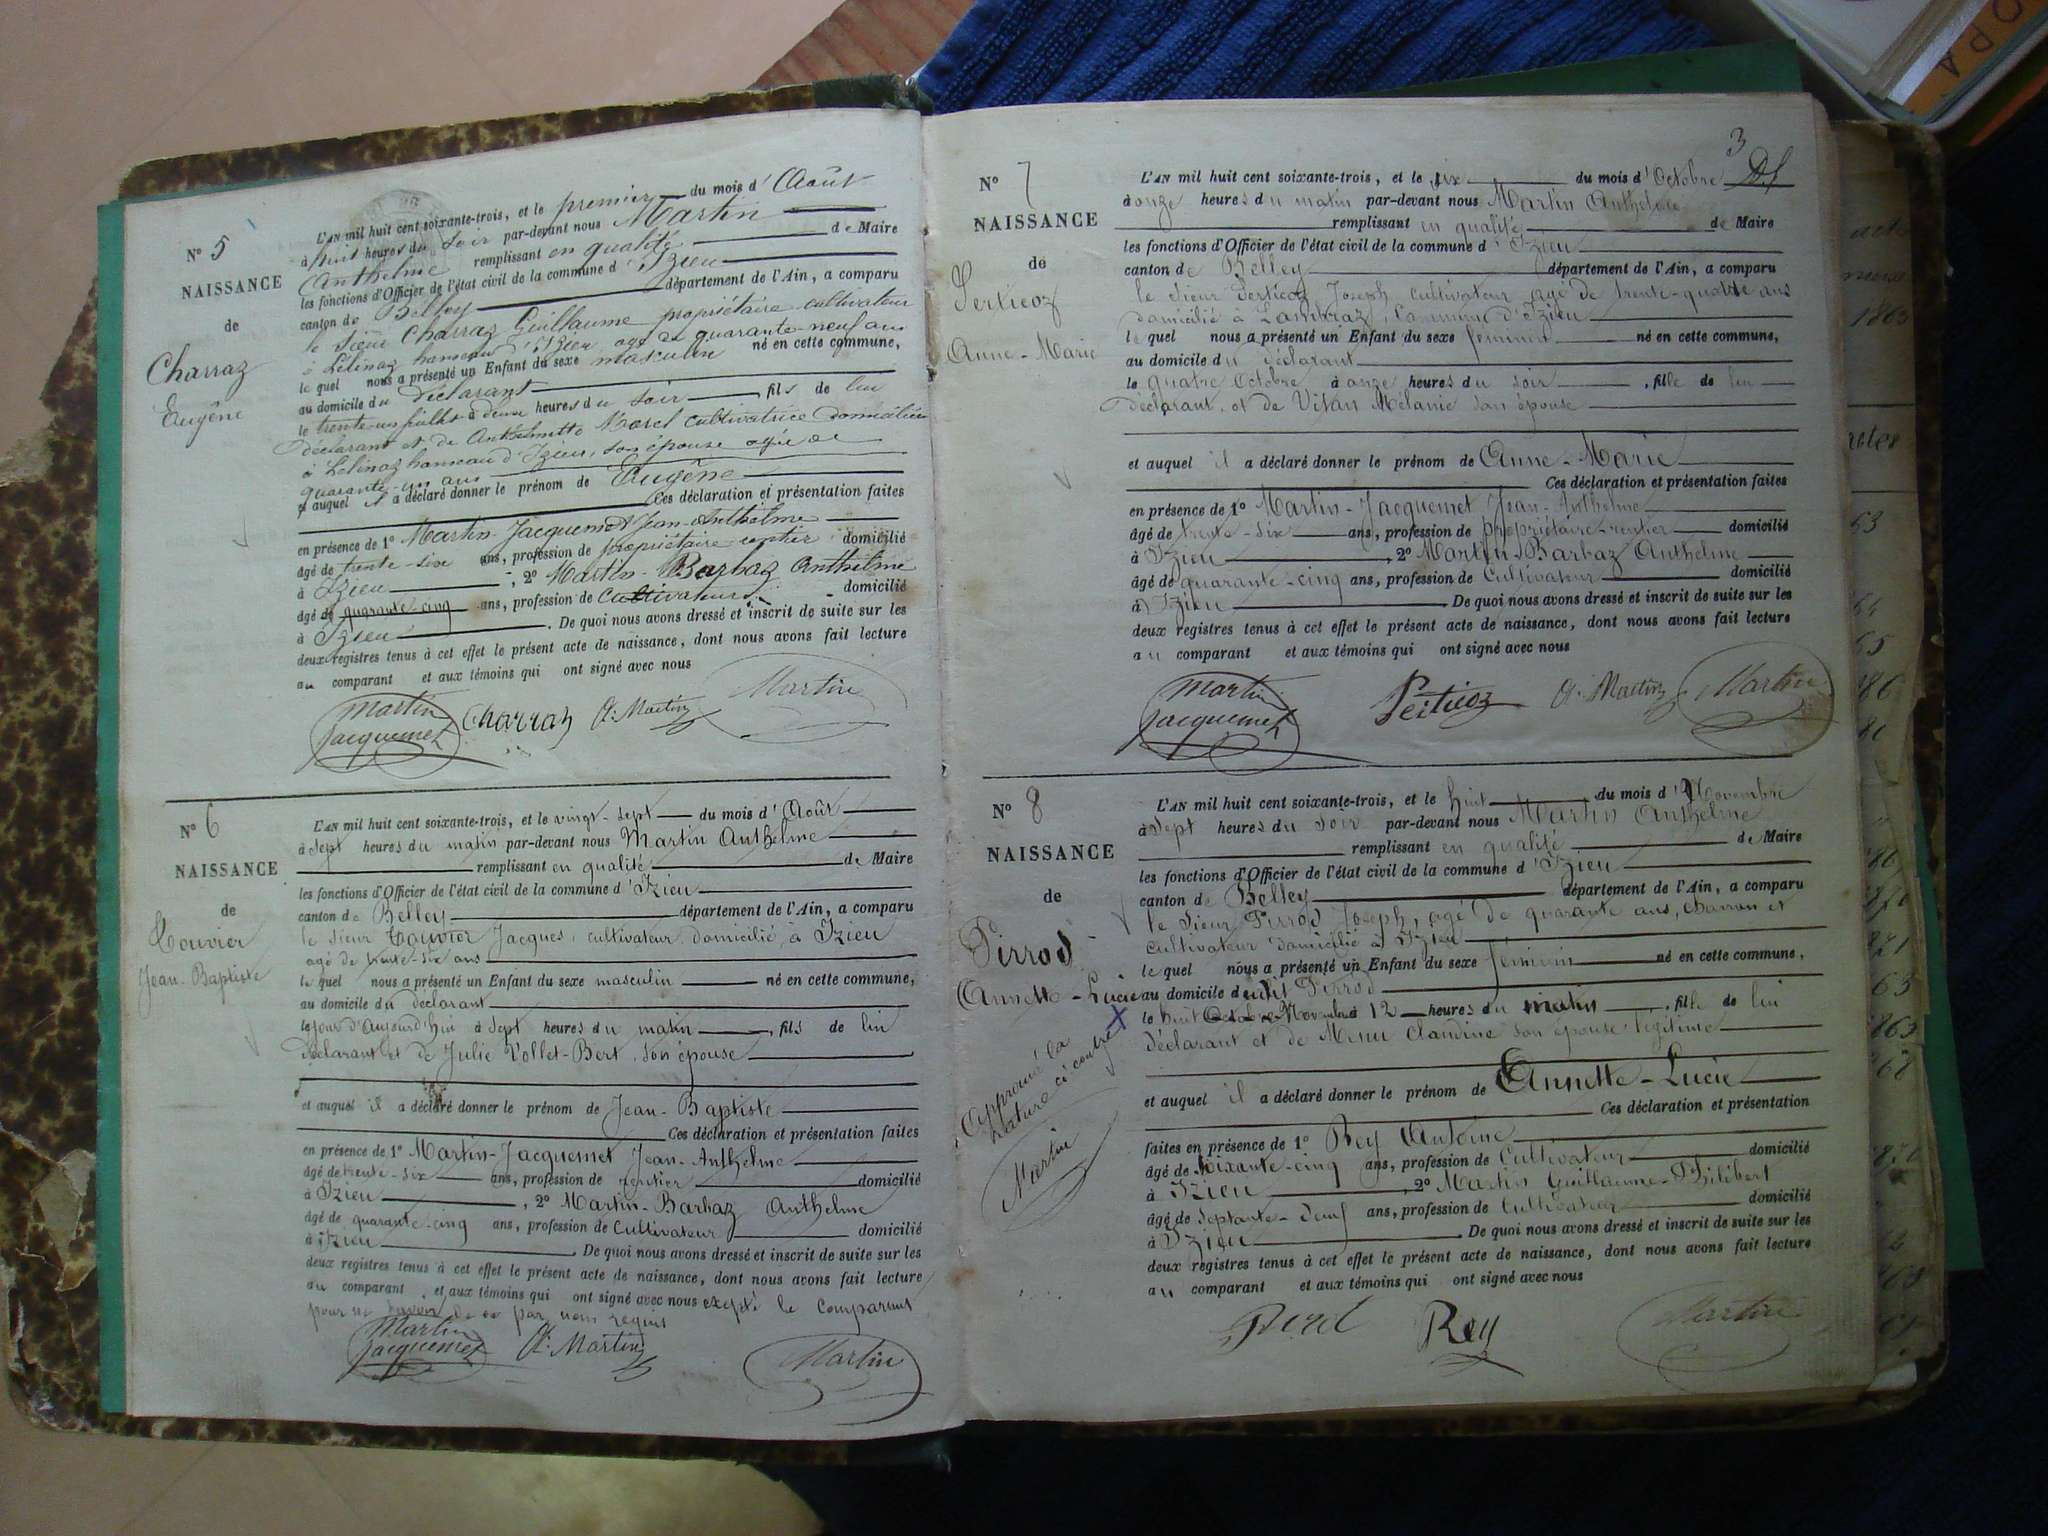 N° 5
NAISSANCE
de
Charraz
Eugêne
L'AN mil huit cent soixante-trois, et le premier du mois d'Août
à huit heures du soir par-devant nous Martin
Anthelme remplissant en qualité de Maire
les fonctions d'Officier de l'état civil de la commune d'Izieu
canton de Belley département de l'Ain, a comparu
le Sieur Charraz Guillaume propriétaire cultivateur
à Lélinaz hameau d'Izieu agé de quarante-neuf ans
le quel nous a présenté un Enfant du sexe masculin né en cette commune,
au domicile du déclarant
le trente-un juillet à deux heures du soir, fils de lui
déclarant et de Anthelmette Morel cultivatrice domiciliée
à Lélinaz hameau d'Izieu, son épouse agée de
quarante-un ans
et auquel il a déclaré donner le prénom de Eugêne
Ces déclaration et présentation faites
en présence de 1° Martin-Jacquemet Jean-Anthelme
âgé de trente-six ans, profession de propriétaire-rentier domicilié
à Izieu, 2° Martin-Barbaz Anthelme
âgé de quarante-cinq ans, profession de cultivateur domicilié
à Izieu. De quoi nous avons dressé et inscrit de suite sur les
deux registres tenus à cet effet le présent acte de naissance, dont nous avons fait lecture
au comparant et aux témoins qui ont signé avec nous
Martin Jacquemet Charraz A. Martin Martin
N° 6
NAISSANCE
de
Touvier
Jean-Baptiste
L'AN mil huit cent soixante-trois, et le vingt-sept du mois d'Août
à sept heures du matin par-devant nous Martin Anthelme
remplissant en qualité de Maire
les fonctions d'Officier de l'état civil de la commune d'Izieu
canton de Belley département de l'Ain, a comparu
le sieur Touvier Jacques, cultivateur domicilié à Izieu
agé de trente-six ans
le quel nous a présenté un Enfant du sexe masculin né en cette commune,
au domicile du déclarant
le jour d'aujourd'hui à sept heures du matin, fils de lui
déclarant et de Julie Vollet-Bert, son épouse
et auquel il a déclaré donner le prénom de Jean-Baptiste
Ces déclaration et présentation faites
en présence de 1° Martin-Jacquemet Jean-Anthelme
âgé de trente-six ans, profession de rentier domicilié
à Izieu, 2° Martin-Barbaz Anthelme
âgé de quarante-cinq ans, profession de Cultivateur domicilié
à Izieu. De quoi nous avons dressé et inscrit de suite sur les
deux registres tenus à cet effet le présent acte de naissance, dont nous avons fait lecture
au comparant et aux témoins qui ont signé avec nous excepté le comparant
pour ne savoir de ce par nous requis
Martin Jacquemet A. Martin Martin
3
N° 7
NAISSANCE
de
Perticoz
Anne-Marie
L'AN mil huit cent soixante-trois, et le six du mois d'Octobre
à onze heures du matin par-devant nous Martin Anthelme
remplissant en qualité de Maire
les fonctions d'Officier de l'état civil de la commune d'Izieu
canton de Belley département de l'Ain, a comparu
le sieur Perticoz Joseph, cultivateur agé de trente-quatre ans
domicilié à Lambraz, Commune d'Izieu
le quel nous a présenté un Enfant du sexe féminin né en cette commune,
au domicile du déclarant
le quatre Octobre à onze heures du soir, fille de lui
déclarant, et de Visan Mélanie son épouse
et auquel il a déclaré donner le prénom de Anne-Marie
Ces déclaration et présentation faites
en présence de 1° Martin-Jacquemet Jean-Anthelme
âgé de trente-six ans, profession de propriétaire-rentier domicilié
à Izieu, 2° Martin-Barbaz Anthelme
âgé de quarante-cinq ans, profession de Cultivateur domicilié
à Izieu. De quoi nous avons dressé et inscrit de suite sur les
deux registres tenus à cet effet le présent acte de naissance, dont nous avons fait lecture
au comparant et aux témoins qui ont signé avec nous
Martin Jacquemet Perticoz A. Martin Martin
N° 8
NAISSANCE
de
Pirrod
Annette-Lucie
Approuvé la
rature ci contre
Martin
L'AN mil huit cent soixante-trois, et le huit du mois d'Novembre
à sept heures du soir par-devant nous Martin Anthelme
remplissant en qualité de Maire
les fonctions d'Officier de l'état civil de la commune d'Izieu
canton de Belley département de l'Ain, a comparu
le Sieur Pirrod Joseph, agé de quarante ans, charron et
cultivateur domicilié à Izieu
le quel nous a présenté un Enfant du sexe féminin né en cette commune,
au domicile dudit Pirrod
le huit Novembre à 12 heures du matin, fille de lui
déclarant et de Menu Claudine son épouse légitime
et auquel il a déclaré donner le prénom de Annette-Lucie
Ces déclaration et présentation
faites en présence de 1° Rey Antoine
âgé de soixante-cinq ans, profession de Cultivateur domicilié
à Izieu, 2° Martin Guillaume-Philibert
âgé de septante-deux ans, profession de Cultivateur domicilié
à Izieu. De quoi nous avons dressé et inscrit de suite sur les
deux registres tenus à cet effet le présent acte de naissance, dont nous avons fait lecture
au comparant et aux témoins qui ont signé avec nous
Rey Martin